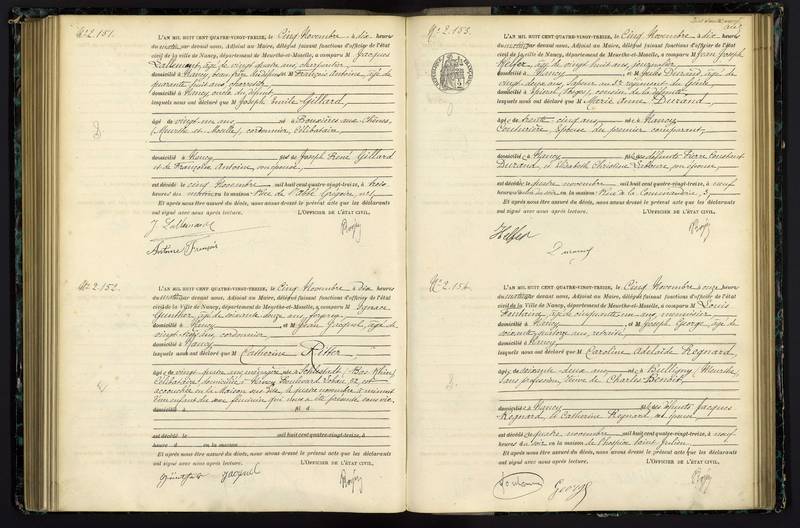 N° 2.151.
L'AN MIL HUIT CENT QUATRE-VINGT-TREIZE, le Cinq Novembre à dix heures
du matin par devant nous, Adjoint au Maire, délégué faisant fonctions d'officier de l'état
civil de la ville de Nancy, département de Meurthe-et-Moselle, a comparu M Jacques
Lallemand, âgé de vingt quatre ans, charpentier
domicilié à Nancy, beau frère du défunt et M François Antoine, âgé de
quarante huit ans,
domicilié à Nancy, oncle du défunt
lesquels nous ont déclaré que M Joseph Emile Gillard,
âgé de vingt un ans né à Bouxières-aux-Chênes,
(Meurthe et Moselle), cordonnier, célibataire,
domicilié à Nancy fils de Joseph René Gillard
et de Françoise Antoine, son épouse
est décédé le cinq Novembre mil huit cent quatre-vingt-treize, à trois
heures du matin, en la maison Rue de l'Abbé Grégoire, n°
Et après nous être assuré du décès, nous avons dressé le présent acte que les déclarants
ont signé avec nous après lecture. L'OFFICIER DE L'ÉTAT CIVIL,
J Lallemand
Antoine François
N° 2.152.
L'AN MIL HUIT CENT QUATRE-VINGT-TREIZE, le Cinq Novembre à dix heures
du matin par devant nous, Adjoint au Maire, délégué faisant fonctions d'officier de l'état
civil de la Ville de Nancy, département de Meurthe-et-Moselle, a comparu M Ignace
Gunther, âgé de soixante douze ans, forgeron
domicilié à Nancy et M Jean Jacquel, âgé de
vingt ans, cordonnier
domicilié à Nancy
lesquels nous ont déclaré que M Catherine Ritter
âgée de vingt quatre ans, ménagère née à Schlestadt, Bas Rhin,
célibataire, domiciliée à Nancy, Boulevard Lobau 52 est
accouchée en la Maison sus dite, le quatre novembre à minuit
d'un enfant du sexe féminin qui nous a été présenté sans vie.
domicilié à fil d
est décédé le mil huit cent quatre-vingt-treize, à
heure d en la maison
Et après nous être assuré du décès, nous avons dressé le présent acte que les déclarants
ont signé avec nous après lecture. L'OFFICIER DE L'ÉTAT CIVIL,
Günther Jacquel
N° 2.153.
L'AN MIL HUIT CENT QUATRE-VINGT-TREIZE, le Cinq Novembre à dix heures
du matin par devant nous, Adjoint au Maire, délégué faisant fonctions d'officier de l'état
civil de la Ville de Nancy, département de Meurthe-et-Moselle, a comparu M Jean Joseph
Helfer, âgé de vingt huit ans, journalier
domicilié à Nancy et M Durand, âgé de
vingt deux ans, Sapeur au régiment du Génie
domicilié à Epinal, Vosges, cousin de la défunte
lesquels nous ont déclaré que M Marie Anne Durand,
âgée de trente cinq ans née à Nancy
Couturière, épouse du premier comparant,
domiciliée à Nancy fille des défunts Pierre Constant
Durand et Elizabeth Christine Leboure, son épouse
est décédée le quatre novembre mil huit cent quatre-vingt-treize, à neuf
heures du soir, en la maison Rue de la Commanderie, 3
Et après nous être assuré du décès, nous avons dressé le présent acte que les déclarants
ont signé avec nous après lecture. L'OFFICIER DE L'ÉTAT CIVIL,
Helfer
Durand
N° 2.154.
L'AN MIL HUIT CENT QUATRE-VINGT-TREIZE, le Cinq Novembre à onze heures
du matin par devant nous, Adjoint au Maire, délégué faisant fonctions d'officier de l'état
civil de la Ville de Nancy, département de Meurthe-et-Moselle, a comparu M Louis
Fontaine, âgé de cinquante un ans, menuisier
domicilié à Nancy et M Joseph George, âgé de
soixante quatorze ans, retraité
domicilié à Nancy
lesquels nous ont déclaré que M Caroline Adélaïde Regnard
âgée de soixante deux ans née à (Meurthe)
Sans profession, Veuve de Charles Benoit,
domiciliée à Nancy fille des défunts Jacques
Regnard et Catherine Regnard son épouse
est décédée le quatre novembre mil huit cent quatre-vingt-treize, à neuf
heures du soir en la maison de l'hospice Saint Julien
Et après nous être assuré du décès, nous avons dressé le présent acte que les déclarants
ont signé avec nous après lecture. L'OFFICIER DE L'ÉTAT CIVIL,
Fontaine
George